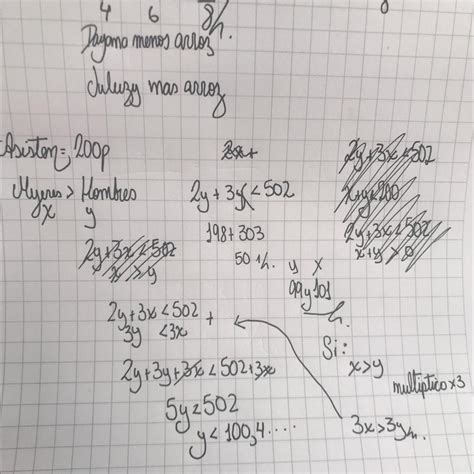 4 6 8h.
Dayama menos arroz
Juluzy mas arroz
Asisten = 200p
Mujeres > Hombres
x y
2y+3x<502
x > y
2x+
2y+3x<502
198+303
501h.
y x
99y101
h.
2y+3x<502
x+y<200
2y+3x<502
x+y>0
2y+3x<502 +
3y <3x
2y+3y+3x<502+3x
5y<502
y<100,4....
Si:
x>y
multiptico x3
3x>3y h.